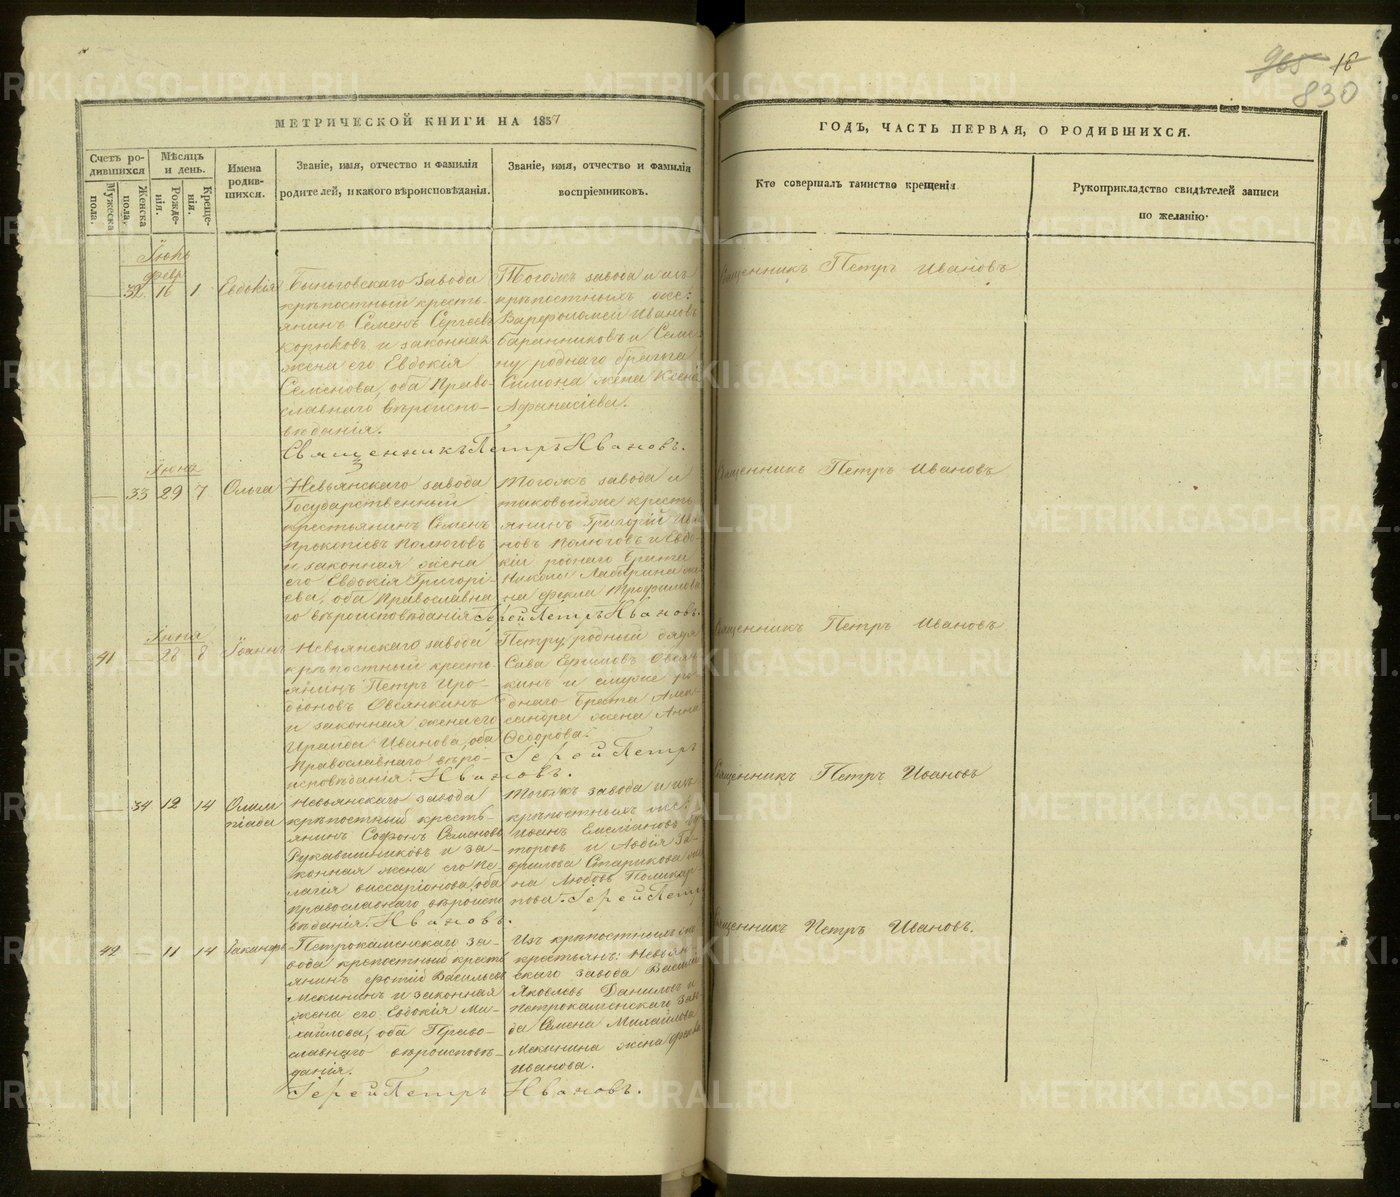 965 18
830
МЕТРИЧЕСКОЙ КНИГИ НА 1857
ГОДЪ, ЧАСТЬ ПЕРВАЯ, О РОДИВШИХСЯ.
Счетъ ро-
дившихся
Мужеска пола.
Женска пола.
Мѣсяцъ
и день.
Рожде-
нія.
Креще-
нія.
Имена
родив-
шихся.
Званіе, имя, отчество и фамилія
родителей, и какого вѣроисповѣданія.
Званіе, имя, отчество и фамилія
воспріемниковъ.
Кто совершалъ таинство крещенія
Рукоприкладство свидѣтелей записи
по желанію.
февр
32 16 1 Евдокія
Быньговскаго завода
крѣпостный кресть-
янинъ Семенъ Сергѣевъ
Корюковъ и законная
жена его Евдокія
Семенова, оба Право-
славнаго вѣроиспо-
вѣданія.
Тогожъ завода и изъ
крѣпостныхъ же:
Варѳоломей Ивановъ
Баранниковъ и Семе-
ну роднаго братьа
Симона жена Ксенія
Афанасіева.
Священникъ Петръ Ивановъ.
Священникъ Петръ Ивановъ
33 29 7 Ольга
Невьянскаго завода
Государственный
крестьянинъ Семенъ
Прокопіевъ Полюговъ
и законная жена
его Евдокія Григорі-
ева, оба Православна-
го вѣроисповѣданія
Тогожъ завода и
таковыйже кресть-
янинъ Григорій Ива-
новъ Полюговъ и Евдо-
кіи роднаго брата
жена Фекла Трофимова
Іерей Петръ Ивановъ.
Священникъ Петръ Ивановъ
Іюня
41 — 28 8 Іоаннъ
Невьянскаго завода
крѣпостный кресть-
янинъ Петръ
Овсянкинъ
и законная жена его
Ираида Иванова, оба
Православнаго вѣро-
исповѣданія.
Петру родный дядя
Сава Ефимовъ Овсян-
кинъ и ро-
днаго брата Алек-
сандра жена Анна
Ѳедорова.
Іерей Петръ
Ивановъ.
Священникъ Петръ Ивановъ
— 34 12 14 Олим-
піада
Невьянскаго завода
крѣпостный кресть-
янинъ Софонъ Семеновъ
Рукавишниковъ и за-
конная жена его Пе-
лагія Виссаріонова, оба
православнаго вѣроиспо-
вѣданія.
Тогожъ завода и изъ
крѣпостныхъ же:
Иванъ Емеліановъ
и Авдія Га-
врилова Старикова же-
на Любовь Поликар-
пова. Іерей Петръ
Ивановъ.
Священникъ Петръ Ивановъ
42 — 11 14
Петрокаменскаго за-
вода крѣпостный кресть-
янинъ Фотій Васильевъ
Мекининъ и законная
жена его Евдокія Ми-
хайлова, оба Право-
славнаго вѣроисповѣ-
данія.
Изъ крѣпостныхъ же
крестьянъ: Невьян-
скаго завода Василій
Яковлевъ Даниловъ и
Петрокаменскаго заво-
да Семена Михайлова
Мекинина жена
Иванова.
Іерей Петръ Ивановъ.
Священникъ Петръ Ивановъ.
METRIKI.GASO-URAL.RU